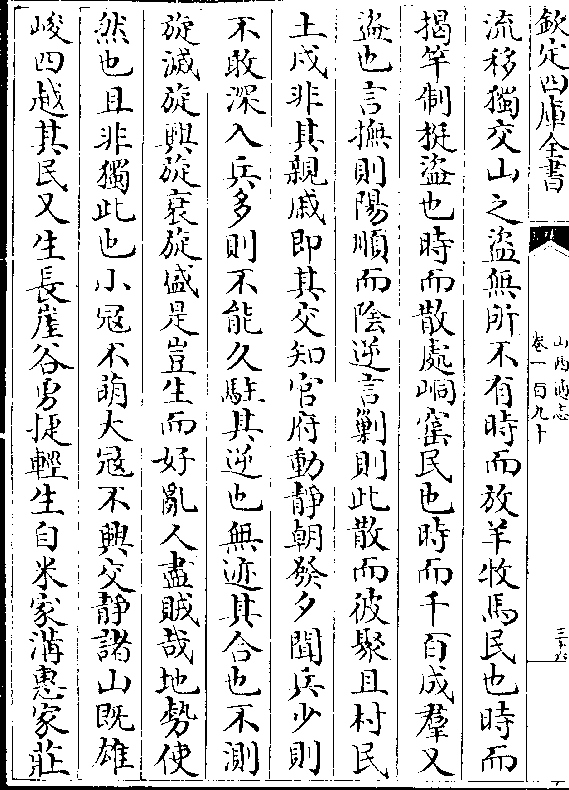 欽定四庫全書
山西通志
卷一百九十
三十六
流移獨交山之盜無所不有時而放羊牧馬民也時而
揭竿制梃盜也時而散處峒窰民也時而千百成羣又
盜也言撫則陽順而陰逆言剿則此散而彼聚且村民
土戍非其親戚即其交知官府動靜朝發夕聞兵少則
不敢深入兵多則不能久駐其逆也無迹其合也不測
旋滅旋興旋衰旋盛是豈生而好亂人盡賊哉地勢使
然也且非獨此也小冦不萌大冦不興交静諸山既雄
峻四越其民又生長崖谷勇捷輕生自米家溝惠家莊